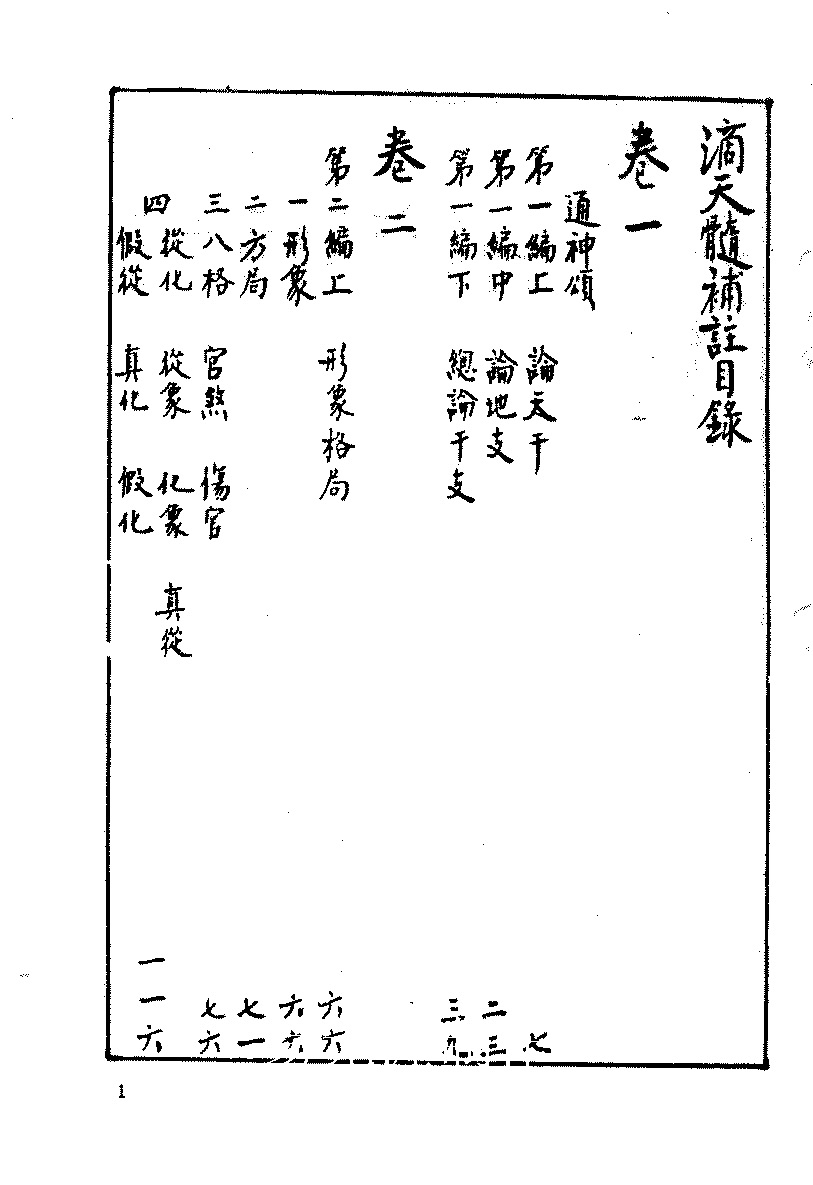 滴天髓補註目錄
卷一
通神頌
第一編上 論天干 七
第一編中 論地支 二三
第一編下 總論干支 三九
卷二
第二編上 形象格局 六六
一形象 六六
二方局 七一
三八格 官煞 傷官 七六
四 從化 從象 化象 真從
假從 真化 假化 一一六
1